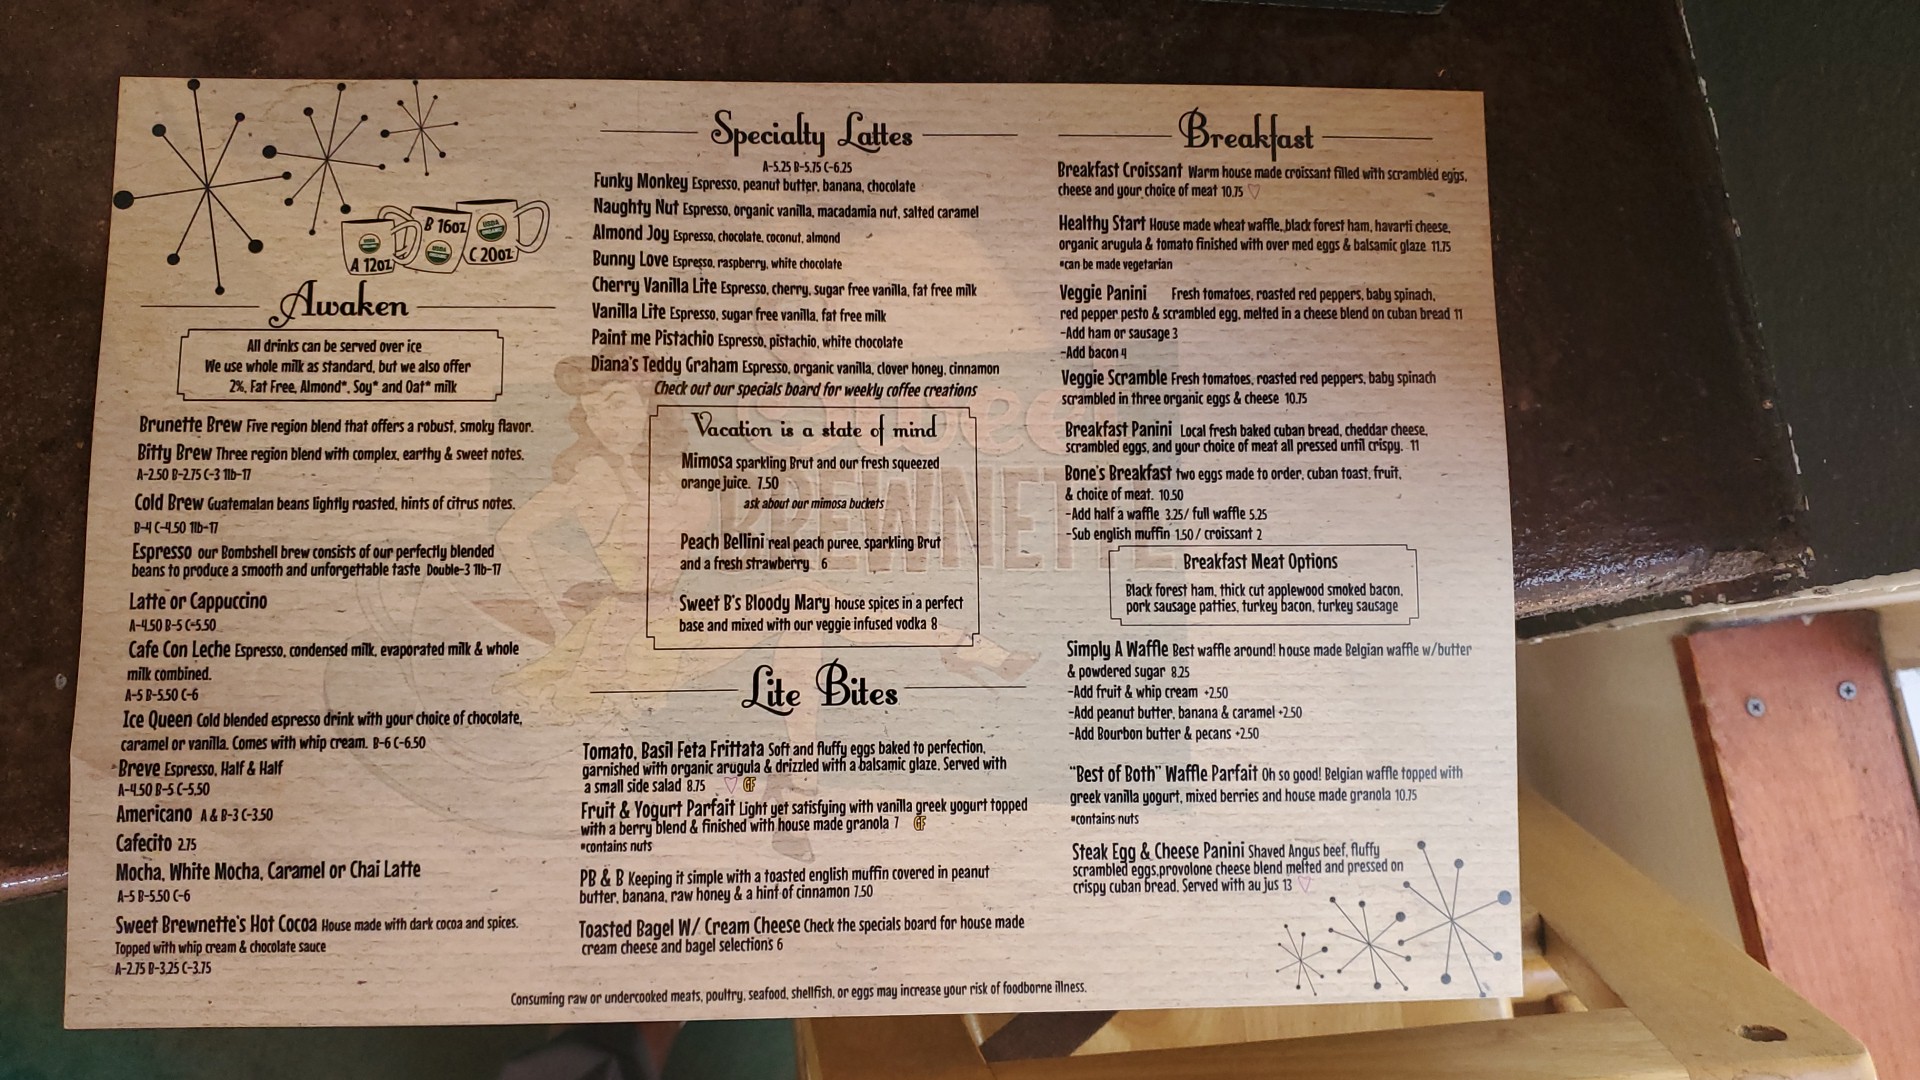 A 12oz
B 16oz
C 20oz
USDA ORGANIC
Awaken
All drinks can be served over ice
We use whole milk as standard, but we also offer
2%, Fat Free, Almond*, Soy* and Oat* milk
Brunette Brew Five region blend that offers a robust, smoky flavor.
Bitty Brew Three region blend with complex, earthy & sweet notes.
A-2.50 B-2.75 C-3 1lb-17
Cold Brew Guatemalan beans lightly roasted, hints of citrus notes.
B-4 C-4.50 1lb-17
Espresso our Bombshell brew consists of our perfectly blended
beans to produce a smooth and unforgettable taste Double-3 1lb-17
Latte or Cappuccino
A-4.50 B-5 C-5.50
Cafe Con Leche Espresso, condensed milk, evaporated milk & whole
milk combined.
A-5 B-5.50 C-6
Ice Queen Cold blended espresso drink with your choice of chocolate,
caramel or vanilla. Comes with whip cream. B-6 C-6.50
Breve Espresso, Half & Half
A-4.50 B-5 C-5.50
Americano A & B-3 C-3.50
Cafecito 2.75
Mocha, White Mocha, Caramel or Chai Latte
A-5 B-5.50 C-6
Sweet Brewnette's Hot Cocoa House made with dark cocoa and spices.
Topped with whip cream & chocolate sauce
A-2.75 B-3.25 C-3.75
Specialty Lattes
A-5.25 B-5.75 C-6.25
Funky Monkey Espresso, peanut butter, banana, chocolate
Naughty Nut Espresso, organic vanilla, macadamia nut, salted caramel
Almond Joy Espresso, chocolate, coconut, almond
Bunny Love Espresso, raspberry, white chocolate
Cherry Vanilla Lite Espresso, cherry, sugar free vanilla, fat free milk
Vanilla Lite Espresso, sugar free vanilla, fat free milk
Paint me Pistachio Espresso, pistachio, white chocolate
Diana's Teddy Graham Espresso, organic vanilla, clover honey, cinnamon
Check out our specials board for weekly coffee creations
Vacation is a state of mind
Mimosa sparkling Brut and our fresh squeezed
orange juice. 7.50
ask about our mimosa buckets
Peach Bellini real peach puree, sparkling Brut
and a fresh strawberry 6
Sweet B's Bloody Mary house spices in a perfect
base and mixed with our veggie infused vodka 8
Sweet
BREWNETTE
Lite Bites
Tomato, Basil Feta Frittata Soft and fluffy eggs baked to perfection,
garnished with organic arugula & drizzled with a balsamic glaze. Served with
a small side salad 8.75 ♡ GF
Fruit & Yogurt Parfait Light yet satisfying with vanilla greek yogurt topped
with a berry blend & finished with house made granola 7 GF
*contains nuts
PB & B Keeping it simple with a toasted english muffin covered in peanut
butter, banana, raw honey & a hint of cinnamon 7.50
Toasted Bagel W/ Cream Cheese Check the specials board for house made
cream cheese and bagel selections 6
Breakfast
Breakfast Croissant Warm house made croissant filled with scrambled eggs,
cheese and your choice of meat 10.75 ♡
Healthy Start House made wheat waffle, black forest ham, havarti cheese,
organic arugula & tomato finished with over med eggs & balsamic glaze 11.75
*can be made vegetarian
Veggie Panini Fresh tomatoes, roasted red peppers, baby spinach,
red pepper pesto & scrambled egg, melted in a cheese blend on cuban bread 11
-Add ham or sausage 3
-Add bacon 4
Veggie Scramble Fresh tomatoes, roasted red peppers, baby spinach
scrambled in three organic eggs & cheese 10.75
Breakfast Panini Local fresh baked cuban bread, cheddar cheese,
scrambled eggs, and your choice of meat all pressed until crispy. 11
Bone's Breakfast two eggs made to order, cuban toast, fruit,
& choice of meat. 10.50
-Add half a waffle 3.25/ full waffle 5.25
-Sub english muffin 1.50 / croissant 2
Breakfast Meat Options
Black forest ham, thick cut applewood smoked bacon,
pork sausage patties, turkey bacon, turkey sausage
Simply A Waffle Best waffle around! house made Belgian waffle w/butter
& powdered sugar 8.25
-Add fruit & whip cream +2.50
-Add peanut butter, banana & caramel +2.50
-Add Bourbon butter & pecans +2.50
"Best of Both" Waffle Parfait Oh so good! Belgian waffle topped with
greek vanilla yogurt, mixed berries and house made granola 10.75
*contains nuts
Steak Egg & Cheese Panini Shaved Angus beef, fluffy
scrambled eggs,provolone cheese blend melted and pressed on
crispy cuban bread. Served with au jus 13 ♡
Consuming raw or undercooked meats, poultry, seafood, shellfish, or eggs may increase your risk of foodborne illness.